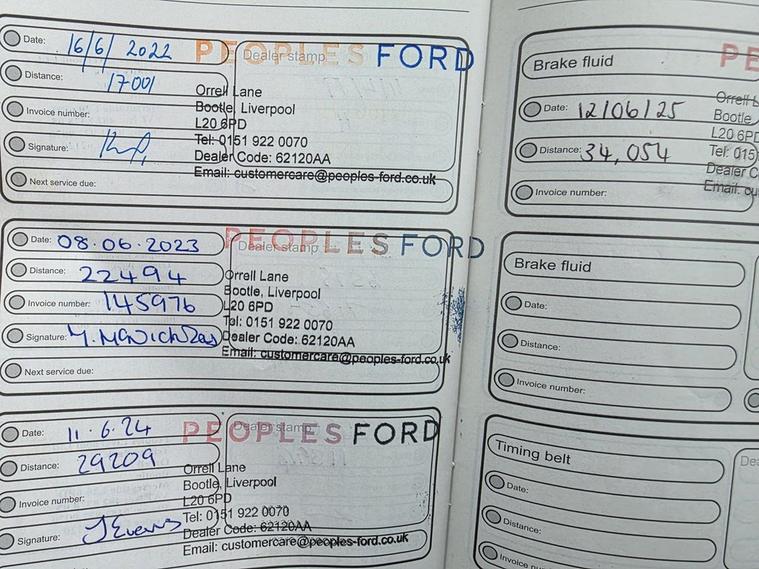 Date: 16/6/2022
PEOPLES FORD
Dealer stamp
Distance: 17001
Orrell Lane
Bootle, Liverpool
Invoice number:
L20 6PD
Signature:
Tel: 0151 922 0070
Dealer Code: 62120AA
Email: customercare@peoples-ford.co.uk
Next service due:
Date: 08.06.2023
PEOPLES FORD
Dealer stamp
Distance: 22494
Orrell Lane
Bootle, Liverpool
Invoice number: 145976
L20 6PD
Tel: 0151 922 0070
Signature:
Dealer Code: 62120AA
Email: customercare@peoples-ford.co.uk
Next service due:
Date: 11.6.24
PEOPLES FORD
Dealer stamp
Distance: 29209
Orrell Lane
Bootle, Liverpool
Invoice number:
L20 6PD
Tel: 0151 922 0070
Signature: J Evans
Dealer Code: 62120AA
Email: customercare@peoples-ford.co.uk
Brake fluid
PE
Orrell L
Date: 12/06/25
Bootle,
L20 6PD
Distance: 34,054
Tel: 015
Dealer C
Invoice number:
Email: cu
Brake fluid
Date:
Distance:
Invoice number:
Timing belt
Dea
Date:
Distance:
Invoice nu